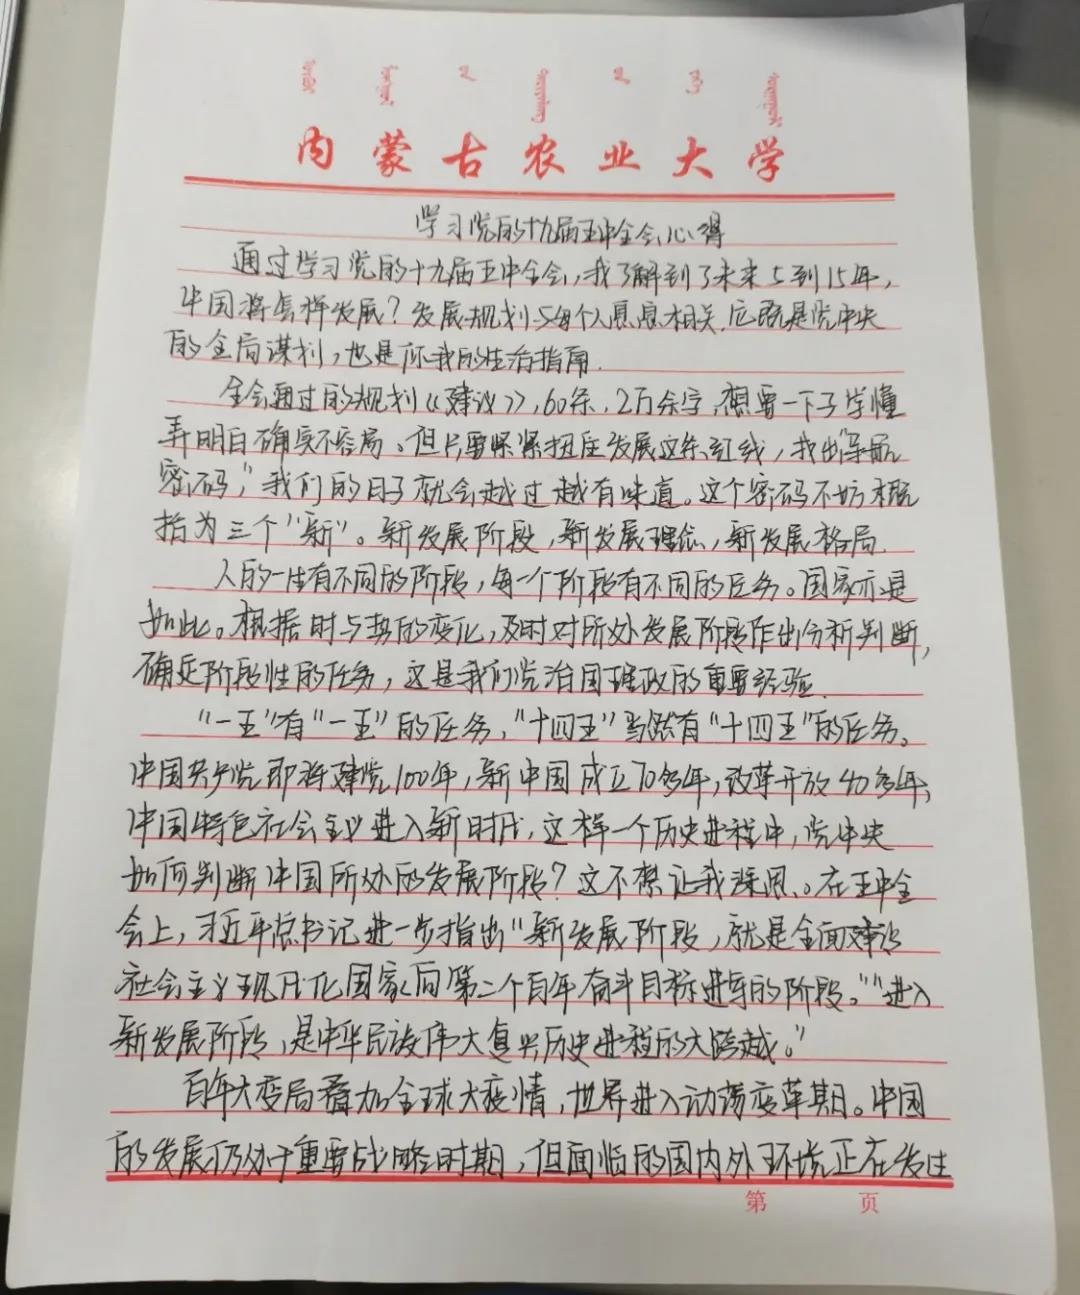 内蒙古农业大学
学习党的十九届五中全会心得
通过学习党的十九届五中全会,我了解到了未来5到15年,
中国将怎样发展?发展规划与每个人息息相关.它既是党中央
的全局谋划,也是你我的生活指南.
全会通过的规划《建议》,60条,2万余字,想要一下子学懂
弄明白确实不容易。但只要紧紧扭住发展这条红线,找出"导航
密码",我们的日子就会越过越有味道。这个密码不妨概
括为三个"新"。新发展阶段,新发展理念,新发展格局.
人的一生有不同的阶段,每一个阶段有不同的任务。国家亦是
如此。根据时与势的变化,及时对所处发展阶段作出分析判断,
确定阶段性的任务,这是我们党治国理政的重要经验.
"一五"有"一五"的任务,"十四五"当然有"十四五"的任务。
中国共产党即将建党100年,新中国成立70多年,改革开放40多年,
中国特色社会主义进入新时代,这样一个历史进程中,党中央
如何判断中国所处的发展阶段?这不禁让我深思。在五中全
会上,习近平总书记进一步指出"新发展阶段,就是全面建设
社会主义现代化国家向第二个百年奋斗目标进军的阶段。""进入
新发展阶段,是中华民族伟大复兴历史进程的大跨越。"
百年大变局叠加全球大疫情,世界进入动荡变革期。中国
的发展仍处于重要战略时期,但面临的国内外环境正在发生
第 页